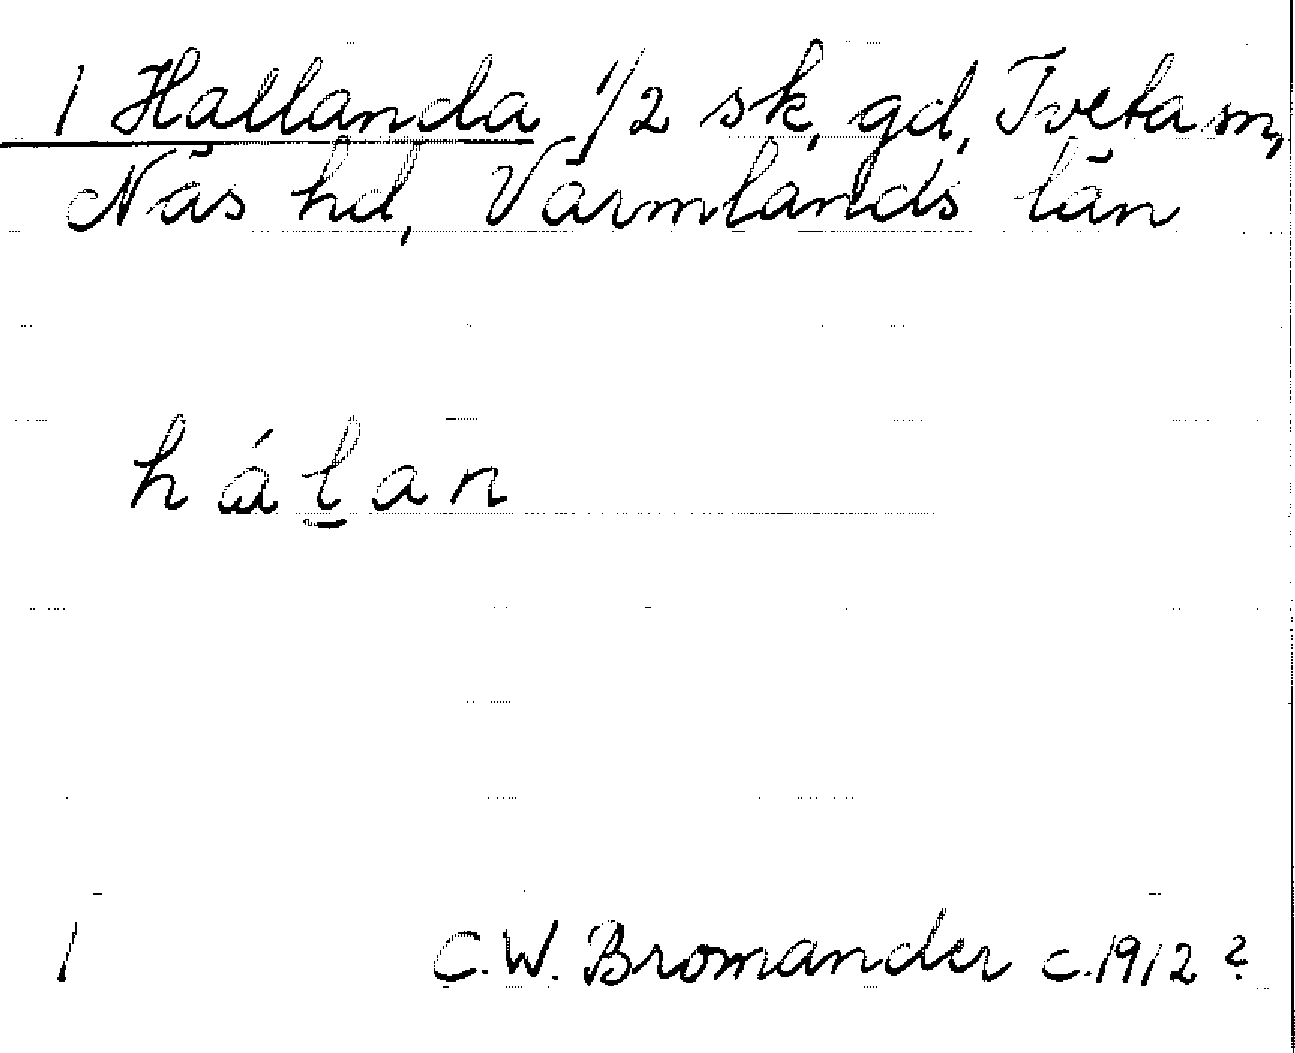 1 Hallanda 1/2 sk, gd, Tveta sn,
Näs hd, Värmlands län
h á l̠ a n
1 C.W. Bromander c. 1912?